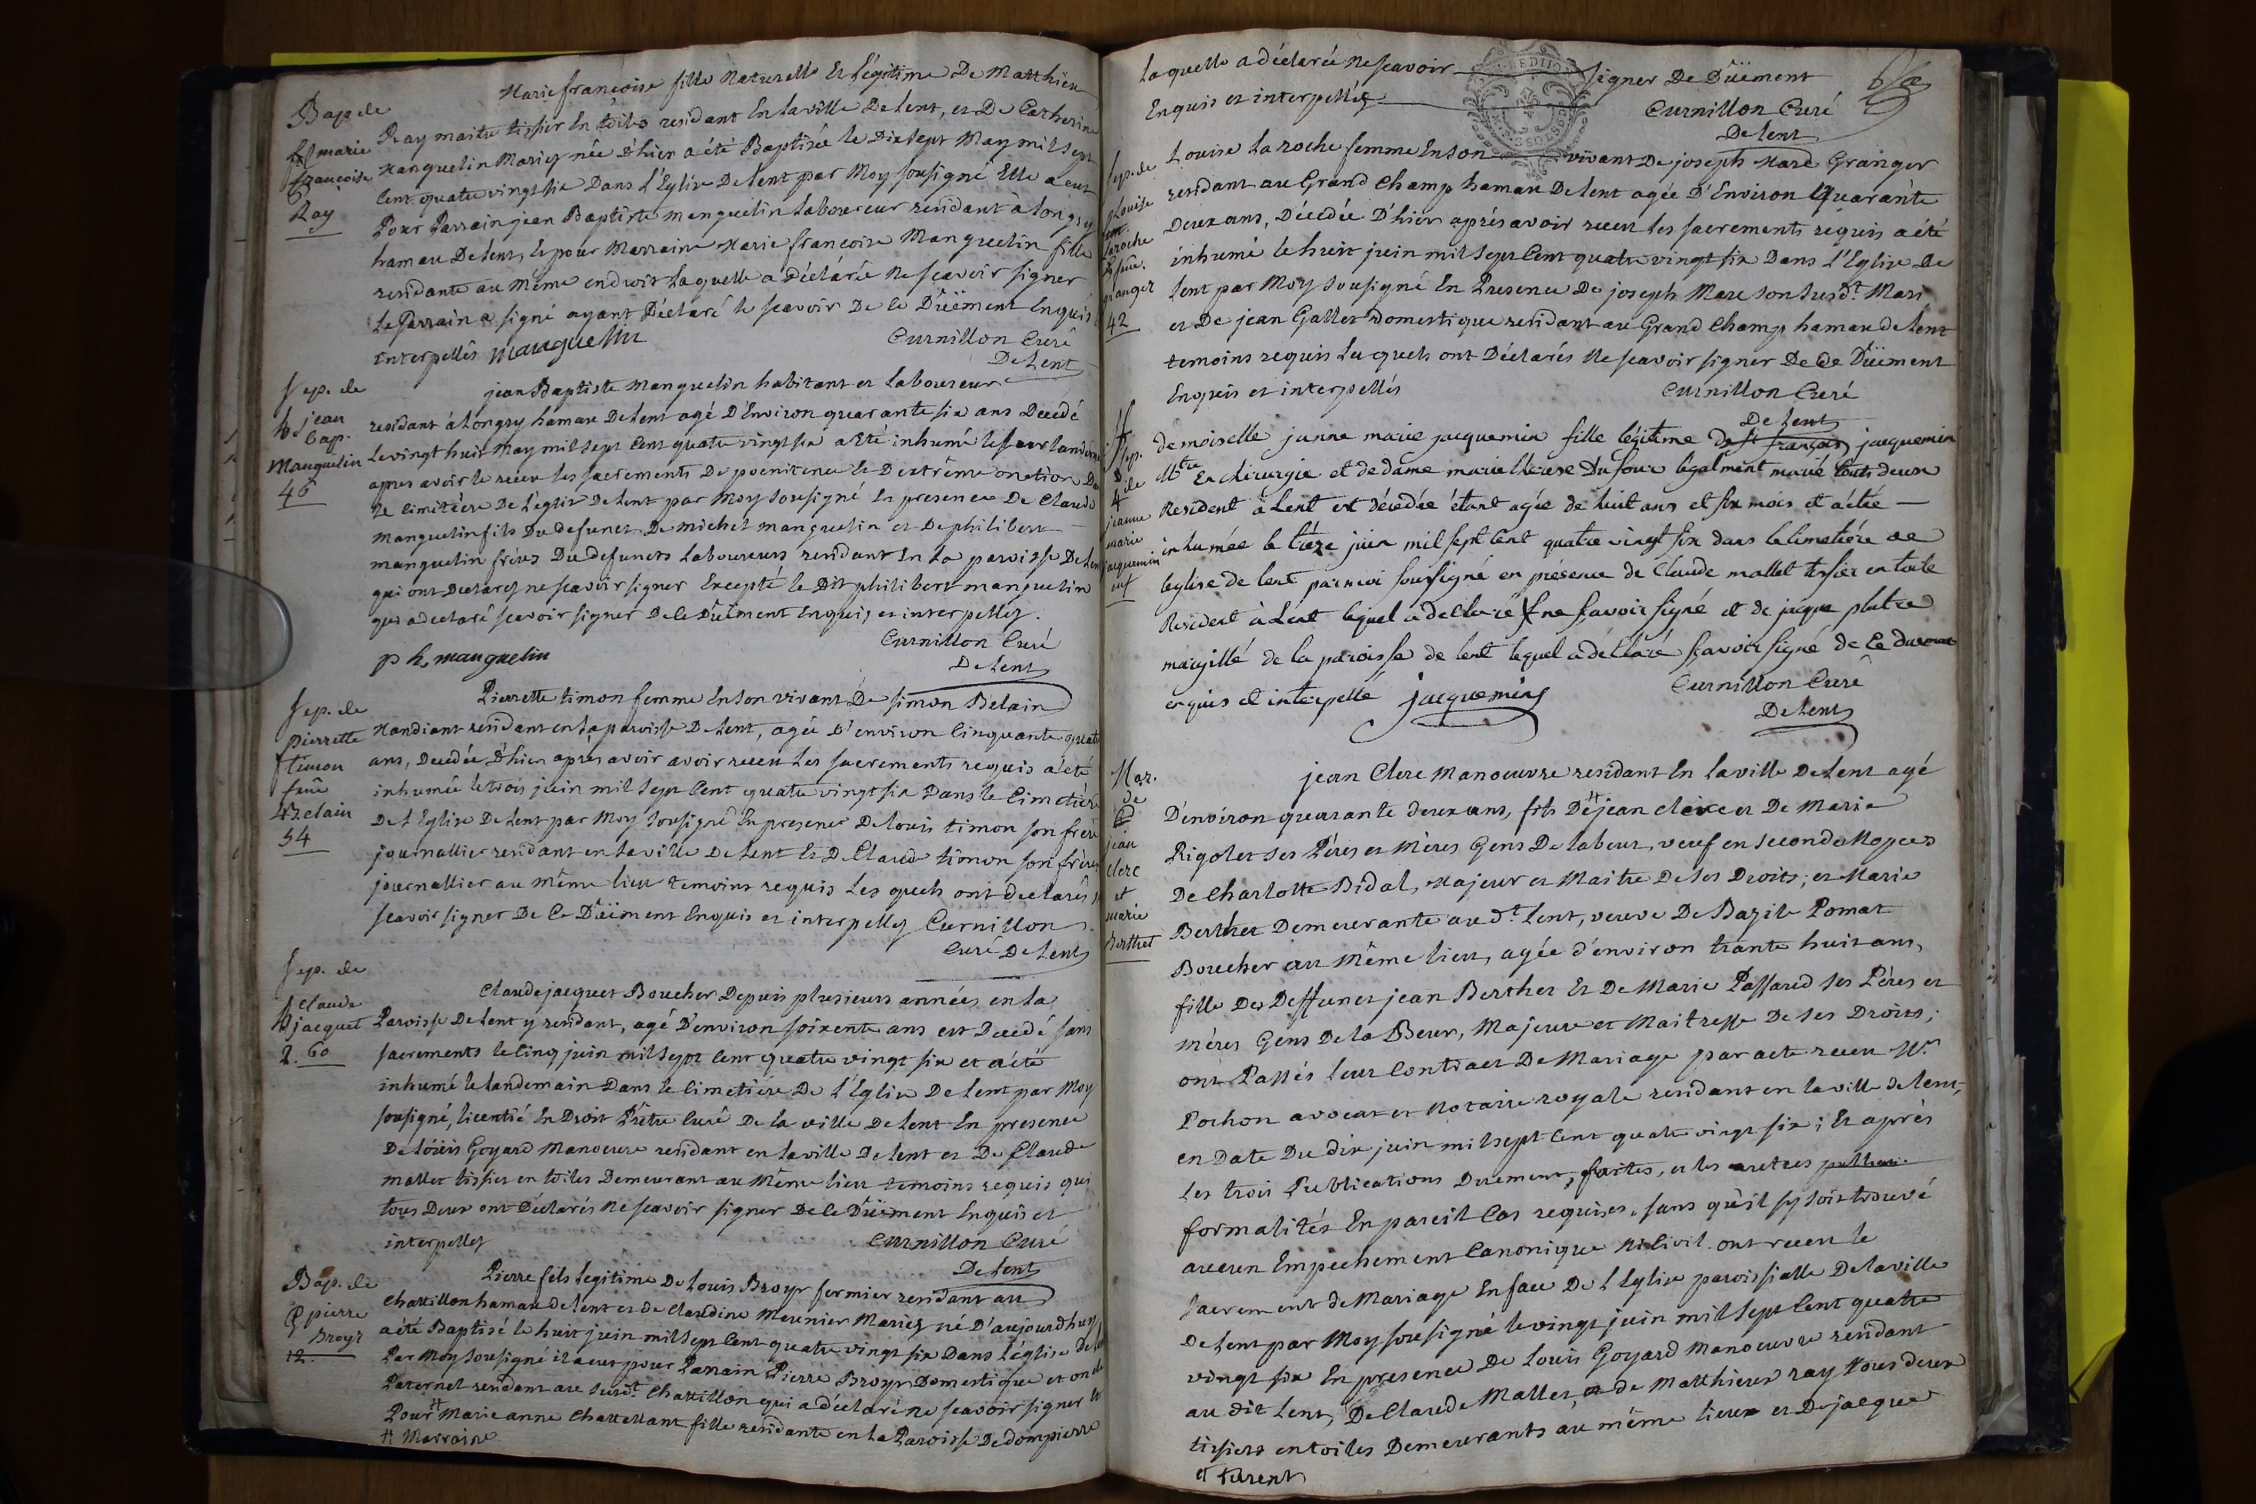 Bap. de
marie
francoise
Ray
Marie françoise fille Naturelle Et Légitime De Matthieu
Ray maitre tissier En toiles residant En la ville De Lent, et De Catherine
Manguelin Mariés née D'hier a été Baptisée le Dix sept May mil sept
Cent quatre vingt six Dans L'Eglise De Lent par Moy sousigné Elle a eut
Pour Parrain jean Baptiste manguelin Laboureur residant à Longry
hamau De Lent, et pour Marraine Marie francoise Manguelin fille
residante au Même endroit Laquelle a Déclarée Ne scavoir signer
Le Parrain a signé ayant Déclaré le scavoir De ce Düement Enquis
interpellés manguelin Curnillon Curé
De Lent
Sep. de
jean
bap.
Manguelin
46
jean Baptiste manguelin habitant et Laboureur
residant à Longry hamau De Lent agé D'Environ quarante six ans Decedé
Le vingt huit May mil sept Cent quatre vingt six a Eté inhumé le surlandemain
apres avoir le receu les sacrements De poenitence et D'extrême onction Dans
le Cimitière De L'Eglise De Lent par Moy sousigné En presence De Claude
manguelin fils Du defunct De michel manguelin et De philibert
manguelin frères Du defunct Laboureurs residant En la paroisse De Lent
qui ont Declarés ne scavoir signer Excepté le Dit philibert manguelin
qui a declaré scavoir signer De ce Düement Enquis et interpellés.
ph. manguelin Curnillon Curé
De Lent
Sep. de
pierrette
timon
fem̃e
Belain
54
Pierrette timon femme En son vivant De simon Belain
Mandiant residant en La paroisse De Lent, agée D'environ Cinquante quatre
ans, Decedée D'hier après avoir avoir receu Les sacrements requis a été
inhumée le trois juin mil sept Cent quatre vingt six Dans le Cimetière
De L'Eglise De Lent par Moy sousigné En presence De Louis timon son frère
journallier residant en La ville De Lent Et De Claude timon son frère
journallier au même lieu temoins requis Les quels ont declarés ne
scavoir signer De Ce Düement Enquis et interpellés Curnillon
Curé De Lent
Sep. de
Claude
jacquet
60
Claude jacquet Boucher Depuis plusieurs années en La
Paroisse De Lent y residant, agé D'environ soixente ans est Decedé sans
sacrements le Cinq juin mil sept Cent quatre vingt six et a été
inhumé le landemain Dans le Cimetière De L'Eglise De Lent par Moy
sousigné, licentié En Droit Prêtre Curé De la ville De Lent En presence
De Loüis Goyard Manoeuvre residant en La ville De Lent et De Claude
mallet tissier en toiles Demeurant au Même lieu temoins requis qui
tous Deux ont Déclarés Ne scavoir signer De Ce Düement Enquis et
interpellés Curnillon Curé
De Lent
Bap. de
pierre
Broyr
12.
Pierre fils Legitime De Louis Broyr fermier residant au
Chattillon hamau de Lent et de Claudine Meunier Mariés né D'aujourdhuy
a été Baptisé le huit juin mil sept Cent quatre vingt six Dans l'église de Lent
Par Moy sousigné il a eut pour Parrain Pierre Broyr Domestique et oncle
Paternel residant au susdt Chattillon qui a déclaré ne scavoir signer et
Pour # Marie anne Chattellant fille residante en La Paroisse De dompierre
# Marraine
La quelle a déclarée Ne scavoir signer De Düement
Enquis et interpellés. Curnillon Curé
De Lent
Sep. de
Louise
Laroche
fem̃e.
granger
42
Louise La roche femme En son vivant De joseph Mare Grainger
residant au Grand Champ hamau De Lent agée D'Environ Quarante
Deux ans, Décedée D'hier après avoir receu Les sacrements requis a été
inhumé le huit juin mil sept Cent quatre vingt six Dans L'Eglise De
Lent par Moy sousigné En Presence De joseph Mare son susdt Mari
et De jean Gallet Domestique residant au Grand Champ hamau de Lent
temoins requis Lesquels ont Déclarés Ne scavoir signer De Ce Düement
Enquis et interpellés Curnillon Curé
De Lent
Sep.
de
jeanne
marie
jacquemin
demoiselle janne marie jacquemin fille légitime de sr françois jacquemin
Mtre En chirurgie et de dame marie therese Dufour legalment marié touts deux
Resident à Lent est décedée étant agée de huit ans et six mois et a étée
inhumée le treze juin mil sept Cent quatre vingt six dans le cimetiére de
leglise de lent par moi soussigné en présence de Claude mallet tissier en toile
Resident à Lent lequel a déclaré ne scavoir signé et de jaque platre
margillé de la paroisse de lent lequel a déclaré scavoir signé de Ce dument
enquis et interpellé jacquemin Curnillon Curé
De Lent
Mar.
de
jean
Clerc
et
marie
Berthet
jean Clerc Manoeuvre residant En La ville De Lent agé
D'environ quarante deux ans, fils De # jean Clerc et De Marie
Rigolet ses Péres et Mères Gens De labeur, veuf en secondes Nopces
De Charlotte Bidal, Majeur et Maitre De ses Droits; et Marie
Berthet Demeurante au dt Lent, veuve De Bazile Pomat
Boucher au Même lieu, agée d'environ trante huit ans,
fille Des Deffunct jean Berthet Et De Marie Passard ses Péres et
méres Gens De la Beur, Majeure et Maitresse De ses Droits;
ont Passés Leur Contract De Mariage par acte receu Mr.
Pochon avocat et Notaire royale residant en la ville de Lent,
en Date Du dix juin mil sept Cent quatre vingt six; Et après
Les trois Publications Duement faites, et les autres
formalités En pareil Cas requises, sans qu'il sy soit trouvé
aucun Empechement Canonique Ni Civil. ont receu le
sacrement de Mariage En face De L'Eglise paroissialle De la ville
De Lent par Moy sousigné le vingt juin mil sept Cent quatre
vingt six En presence De Louis Goyard Manoeuvre residant
au dit Lent, De Claude Mallet, et de Matthieu ray tous deux
tissiers en toiles Demeurants au même lieux et De jacque